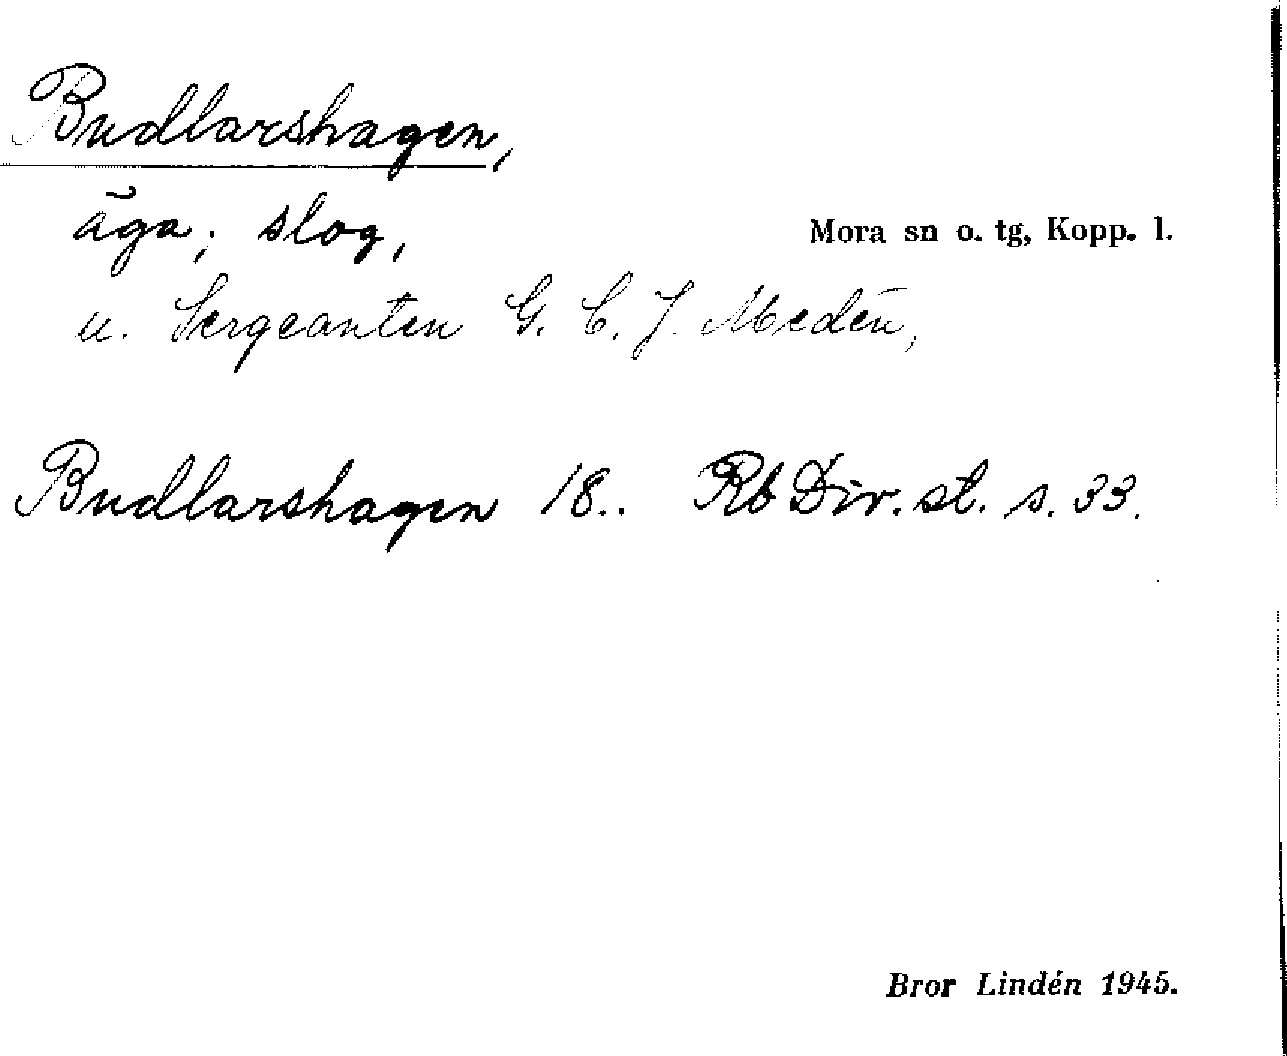 Budlarshagen,
äga; slog,
Mora sn o. tg, Kopp. l.
u. Sergeanten G. C. J. Medén,
Budlarshagen 18.. Rb Div. st. s. 33.
Bror Lindén 1945.